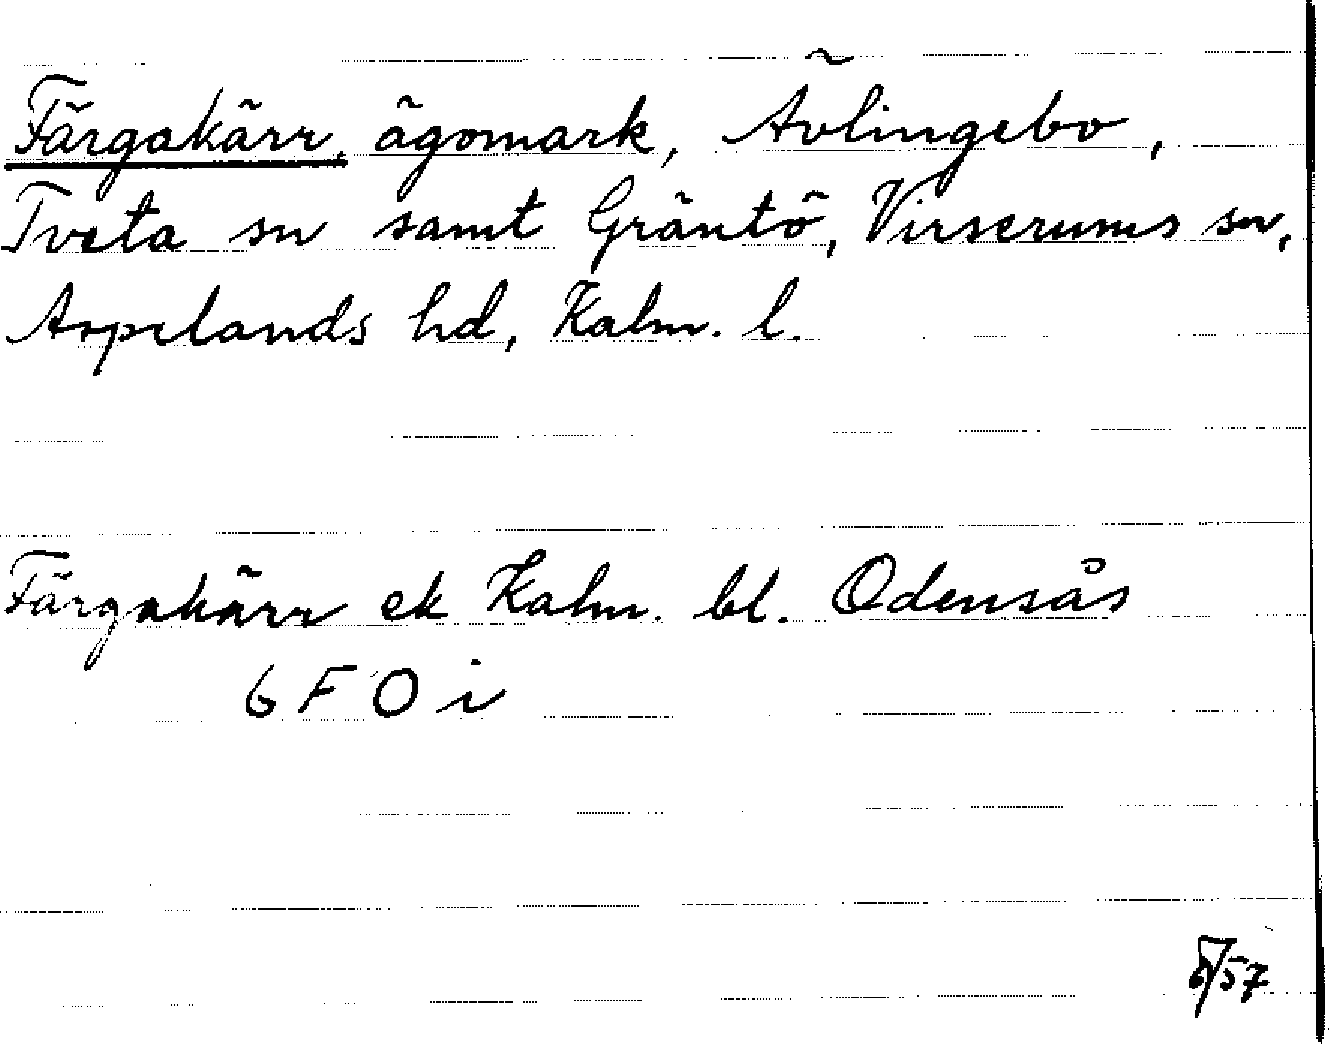 Färgakärr, ägomark, Ävlingebo,
Tveta sn samt Gräntö, Virserums sn,
Aspelands hd, Kalm. l.
Färgakärr ek Kalm. bl. Odensås
6 F 0 i